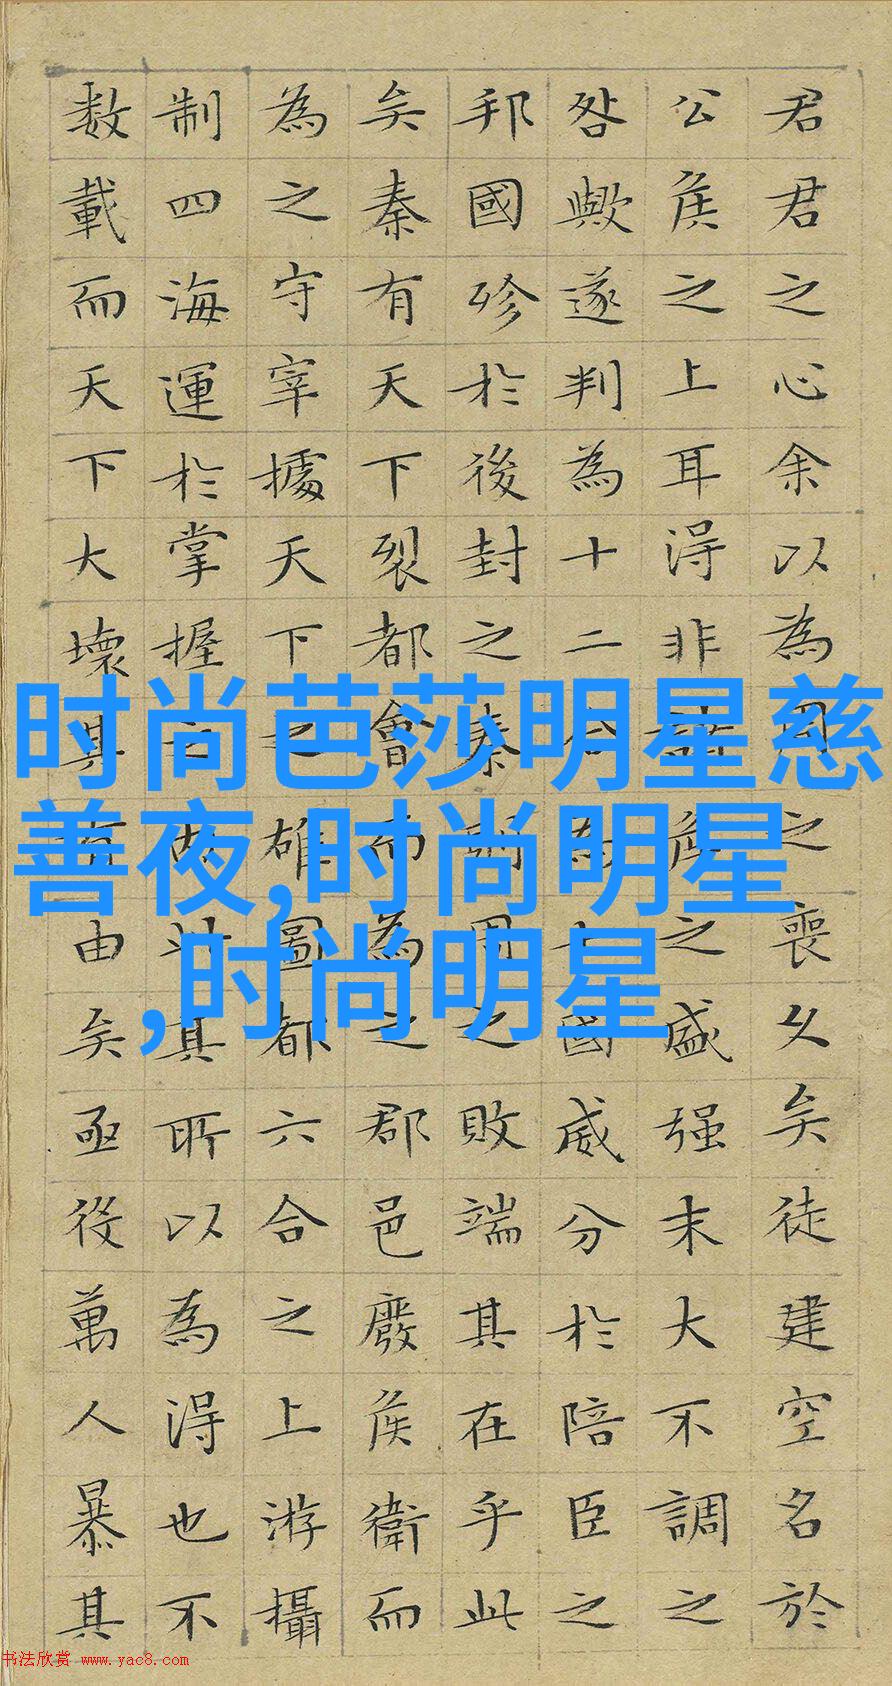 君君之心余以為周之喪久矣徒建空名於
公侯之上耳得非諸侯之盛强末大不調之
咎歟遂判為十二合為七國威分於陪臣之
邦國殄於後封之秦則周之敗端其在乎此
矣秦有天下裂都會而為之郡邑廢侯衛而
為之守宰據天下之雄圖都六合之上游攝
制四海運於掌握之内此其所以為得也不
数載而天下大壞其有由矣亟役萬人暴其
时尚芭莎明星慈
善夜,时尚明星
,时尚明星
书法欣赏 www.yac8.com